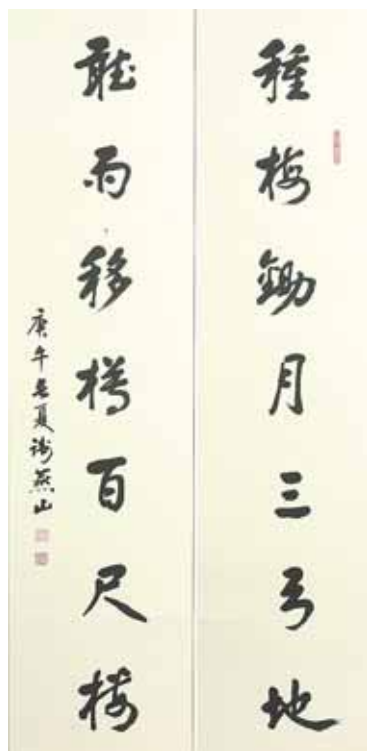 種梅鋤月三弓地
聽雨移樽百尺樓
庚午長夏謝燕山